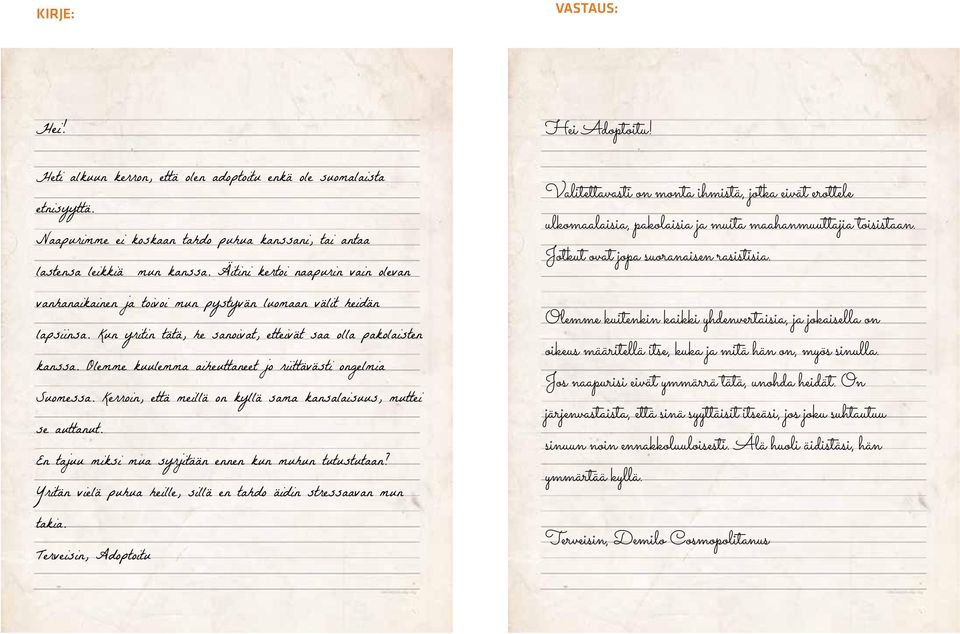 KIRJE:
Hei!
Heti alkuun kerron, että olen adoptoitu enkä ole suomalaista
etnisyyttä.
Naapurimme ei koskaan tahdo puhua kanssani, tai antaa
lastensa leikkiä mun kanssa. Äitini kertoi naapurin vain olevan
vanhanaikainen ja toivoi mun pystyvän luomaan välit heidän
lapsiinsa. Kun yritin tätä, he sanoivat, etteivät saa olla pakolaisten
kanssa. Olemme kuulemma aiheuttaneet jo riittävästi ongelmia
Suomessa. Kerroin, että meillä on kyllä sama kansalaisuus, muttei
se auttanut.
En tajuu miksi mua syrjitään ennen kun muhun tutustutaan?
Yritän vielä puhua heille, sillä en tahdo äidin stressaavan mun
takia.
Terveisin, Adoptoitu
VASTAUS:
Hei Adoptoitu!
Valitettavasti on monta ihmistä, jotka eivät erottele
ulkomaalaisia, pakolaisia ja muita maahanmuuttajia toisistaan.
Jotkut ovat jopa suoranaisen rasistisia.
Olemme kuitenkin kaikki yhdenvertaisia, ja jokaisella on
oikeus määritellä itse, kuka ja mitä hän on, myös sinulla.
Jos naapurisi eivät ymmärrä tätä, unohda heidät. On
järjenvastaista, että sinä syyttäisit itseäsi, jos joku suhtautuu
sinuun noin ennakkoluuloisesti. Älä huoli äidistäsi, hän
ymmärtää kyllä.
Terveisin, Demilo Cosmopolitanus